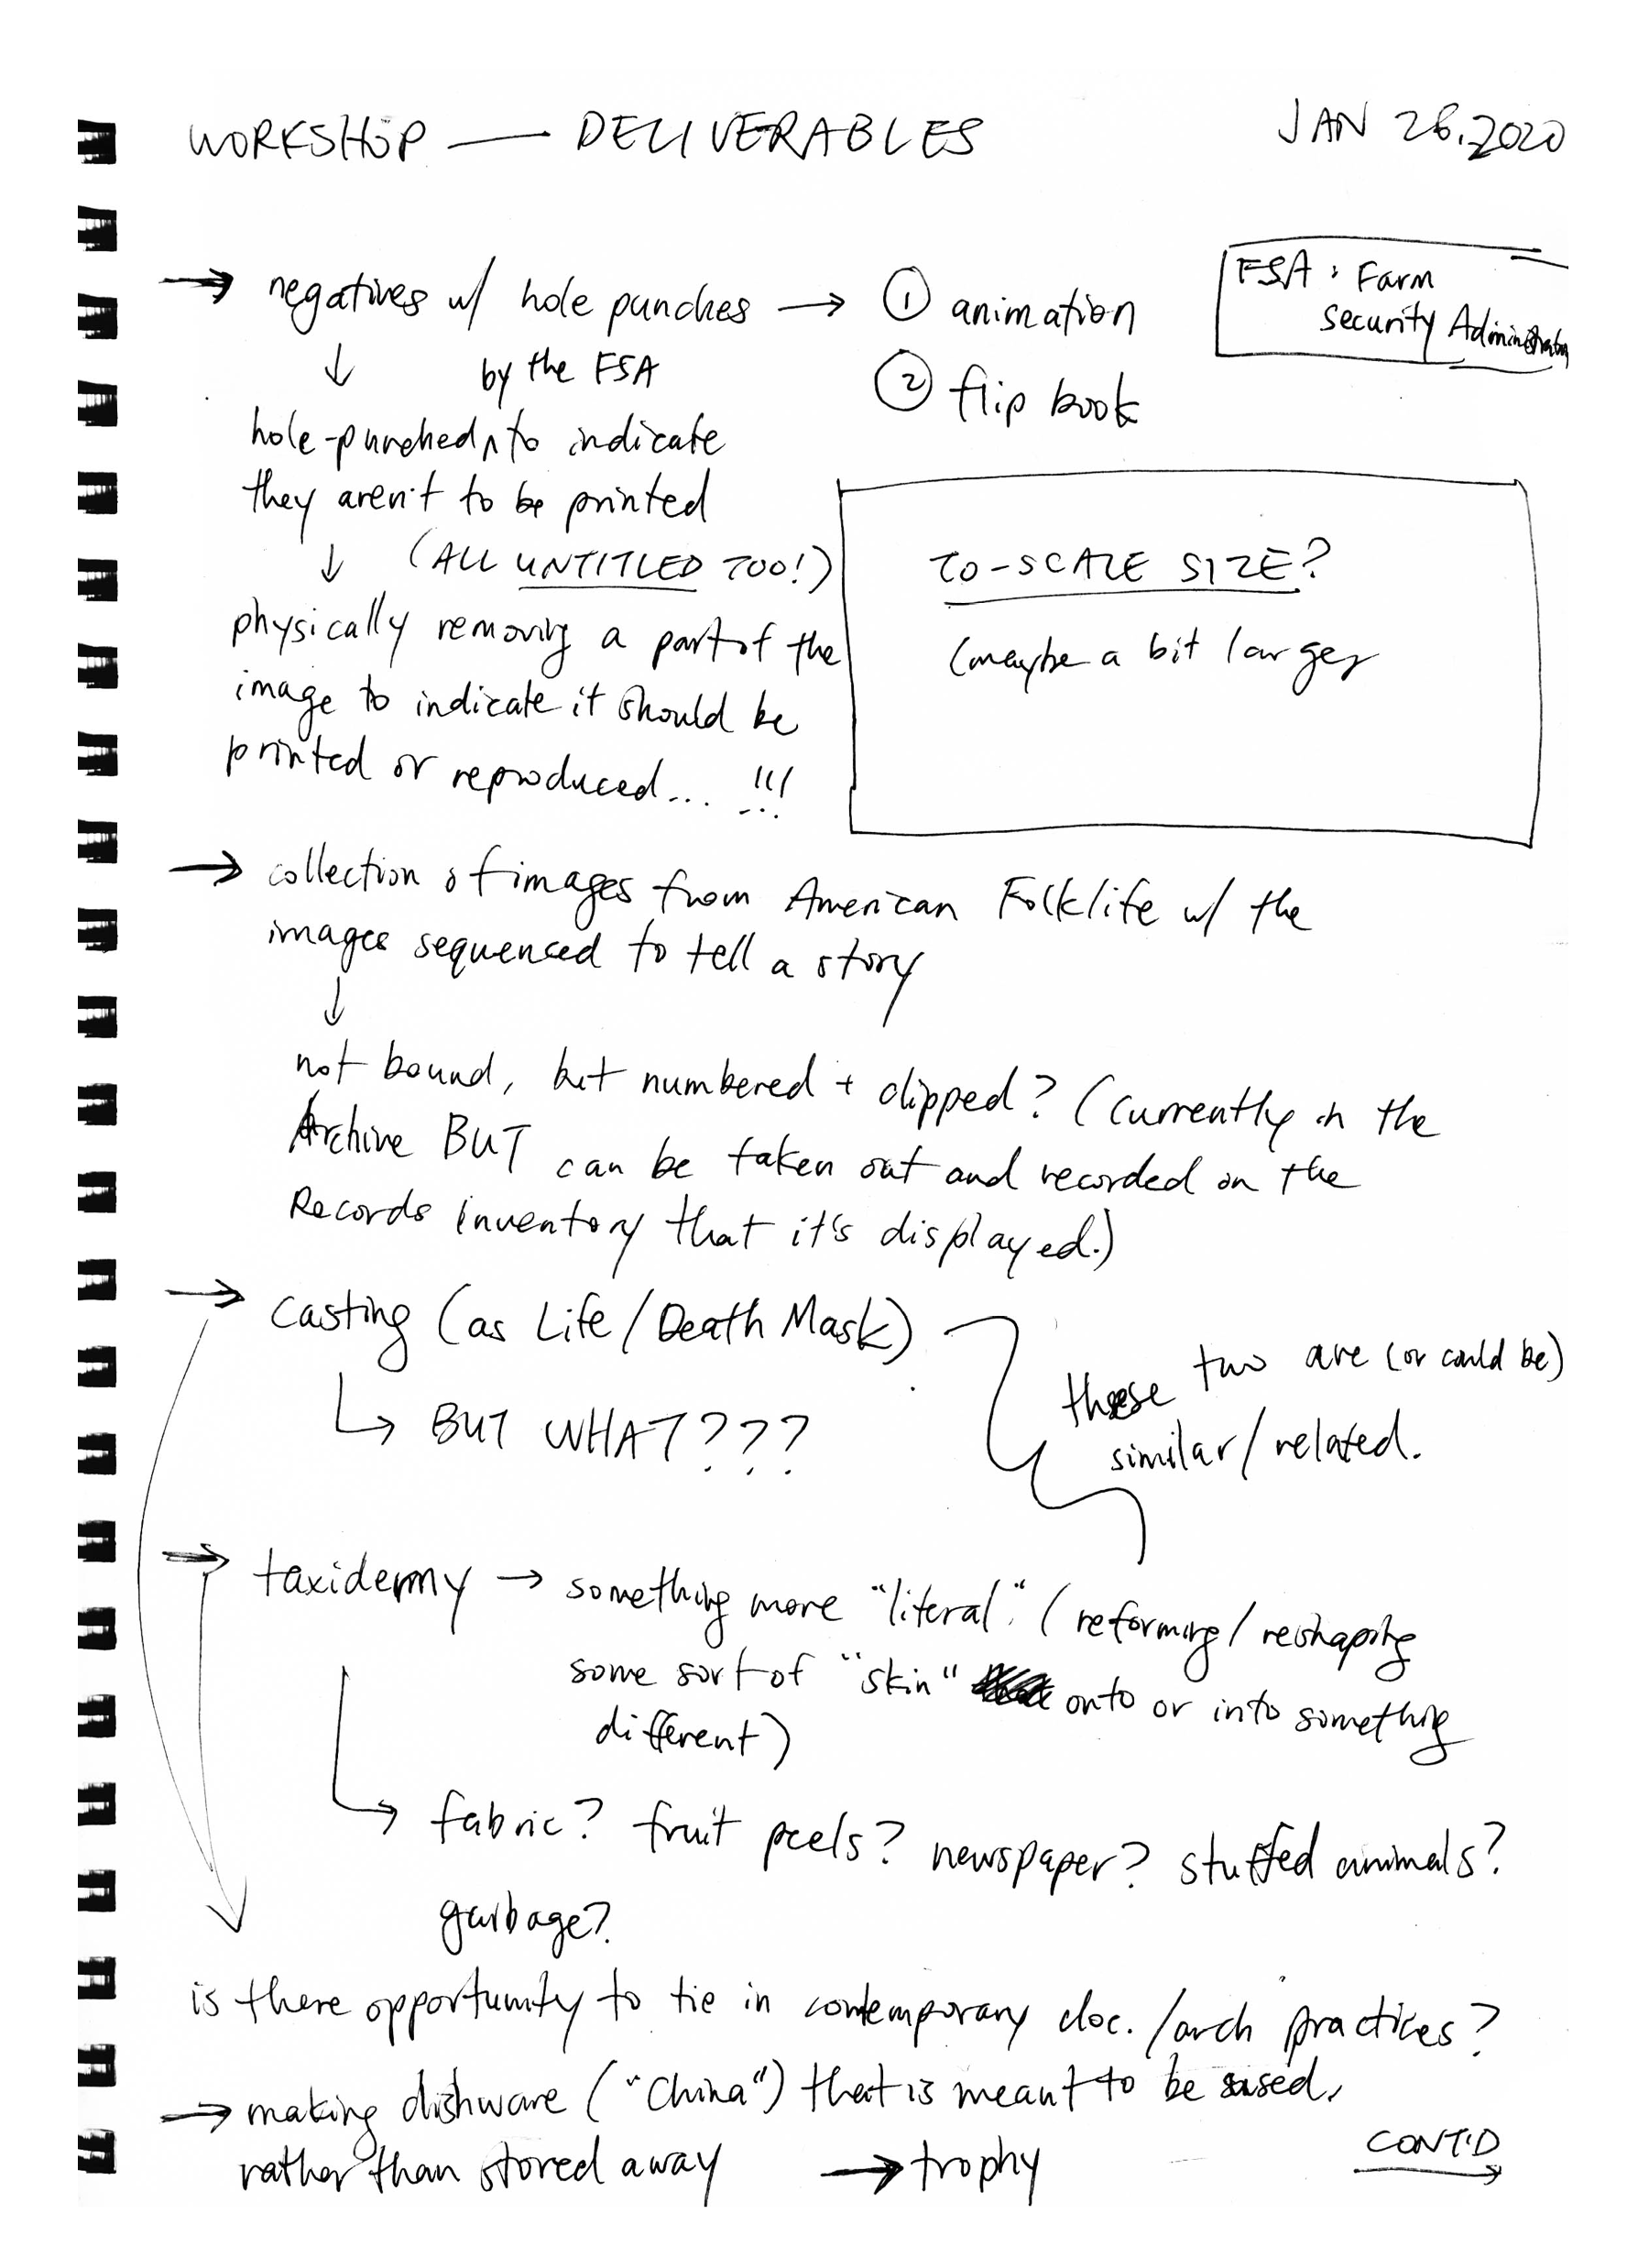 WORKSHOP — DELIVERABLES
JAN 26, 2020
→ negatives w/ hole punches → ① animation
② flip book
FSA: Farm
Security Administration
↓ by the FSA
hole-punched ^ to indicate
they aren't to be printed
↓ (ALL UNTITLED TOO!)
physically removing a part of the
image to indicate it should be
printed or reproduced... !!!
TO-SCALE SIZE?
(maybe a bit larger
→ collection of images from American Folklife w/ the
images sequenced to tell a story
↓
not bound, but numbered + clipped? (currently in the
Archive BUT can be taken out and recorded on the
Records inventory that it's displayed.)
→ casting (as Life/Death Mask)
↳ BUT WHAT???
these two are (or could be)
similar/related.
→ taxidermy → something more "literal." (reforming/reshaping
some sort of "skin" onto or into something
different)
↳ fabric? fruit peels? newspaper? stuffed animals?
garbage?
is there opportunity to tie in contemporary doc./arch practices?
→ making dishware ("China") that is meant to be used,
rather than stored away → trophy
CONT'D